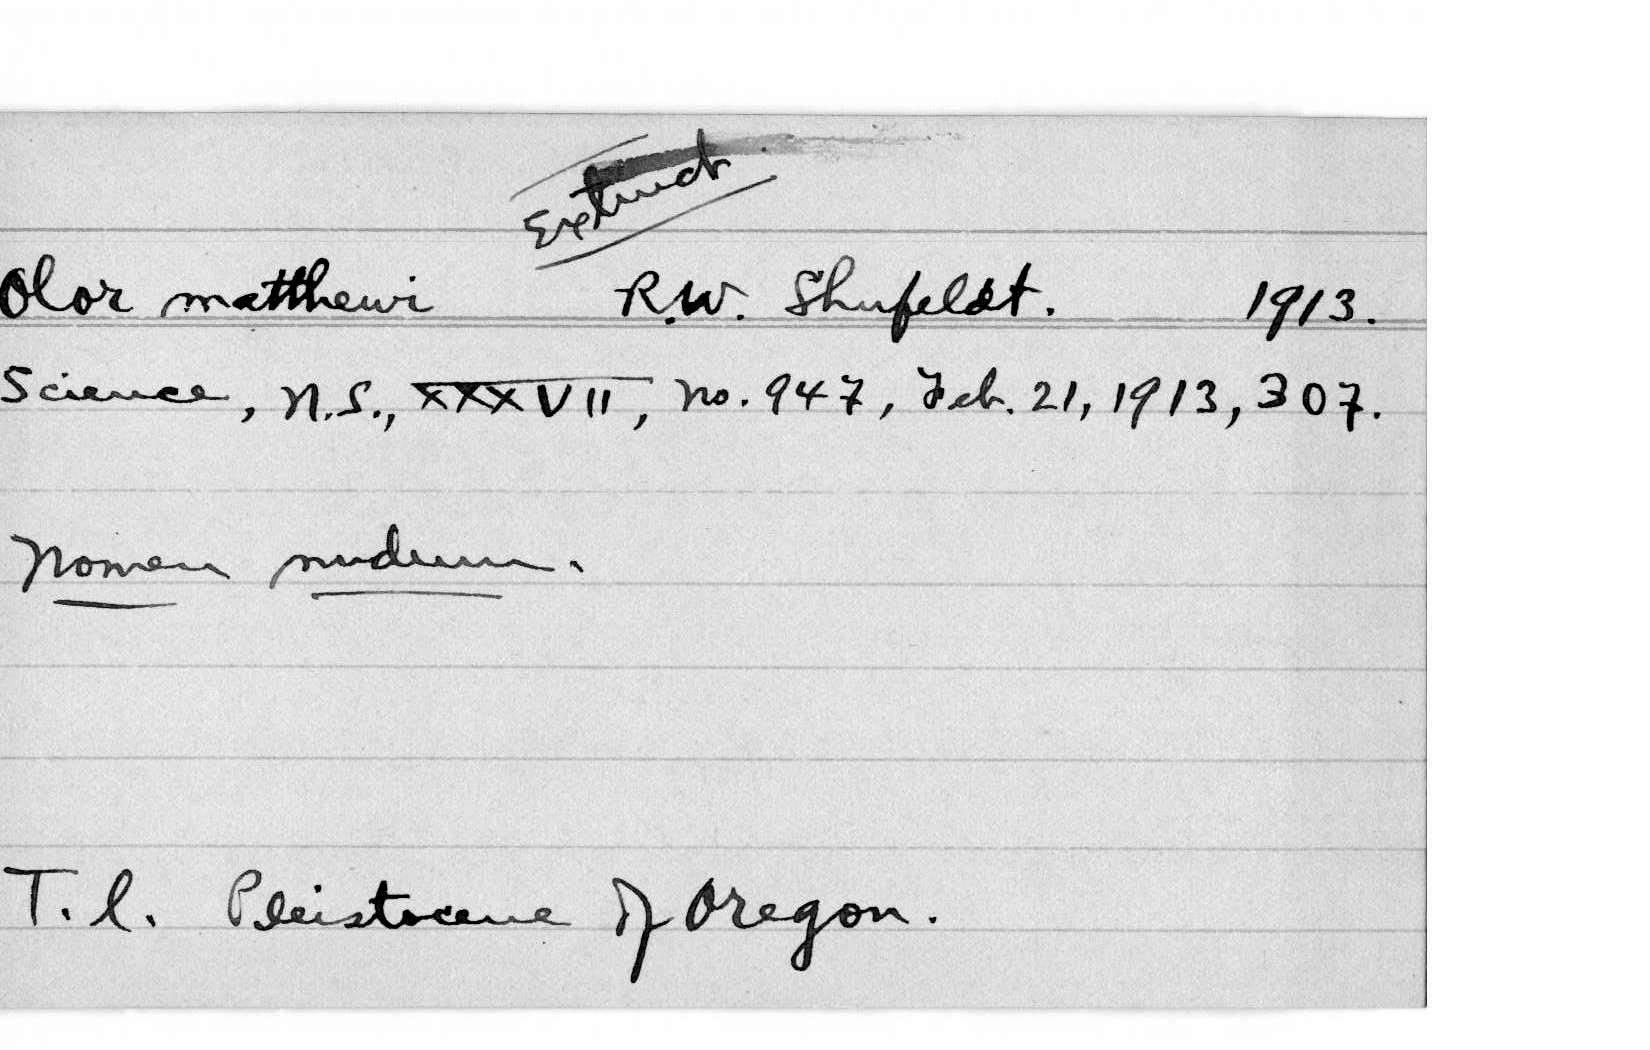 Extinct
Olor matthewi R.W. Shufeldt. 1913.
Science, N.S., XXXVII, no. 947, Feb. 21, 1913, 307.
Nomen nudum.
T. l. Pleistocene of Oregon.